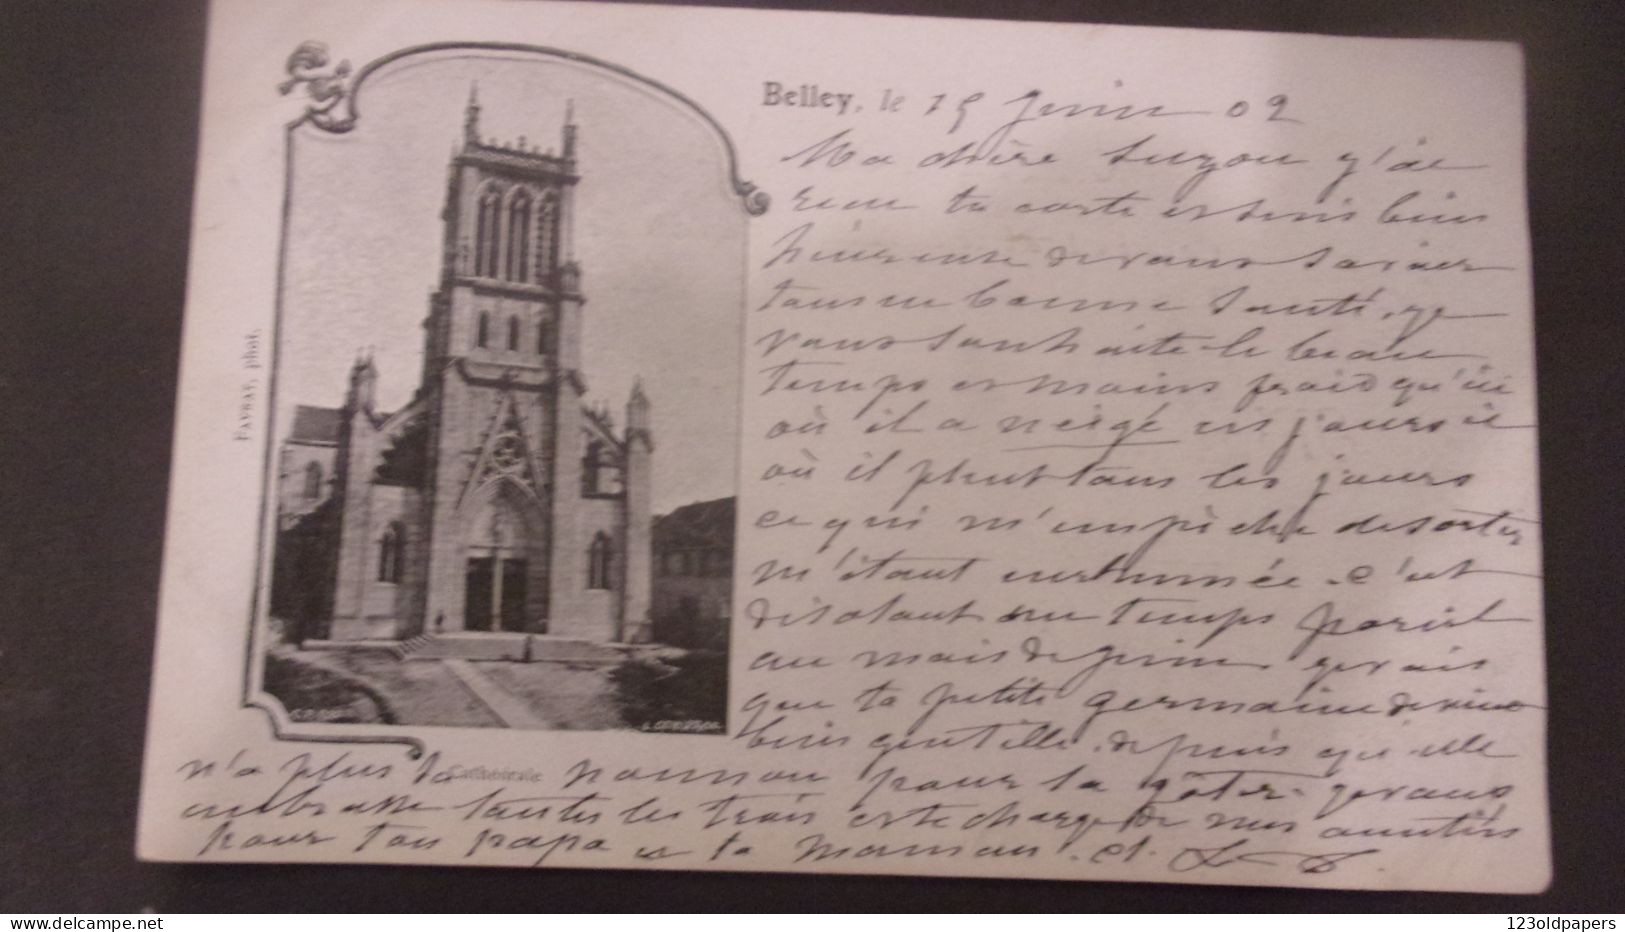 Belley, le 15 Juin 02
Ma chère Suzon j'ai
recu ta carte et suis bien
heureuse de vous savoir
tous en bonne santé, je
vous souhaite le beau
temps et moins froid qu'ici
où il a neigé ces jours ci
où il pleut tous les jours
ce qui m'empêche de sortir
m'étant enrhumée. c'est
désolant un temps pareil
au mois de Juin je vois
que ta petite germaine devient
bien gentille. depuis qu'elle
n'a plus ta nounou pour la gâter. je vous
embrasse toutes les trois et te charge de mes amitiés
pour ton papa et ta maman.
Cathédrale
Favrat, phot.